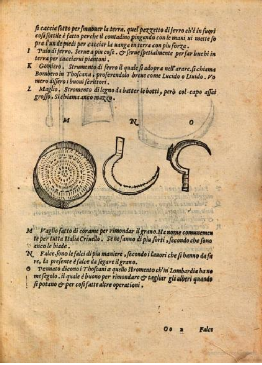 si caccia sotto per smuover la terra, quel pezzetto di ferro ch'è in fuori
così sottile è fatto perche il contadino pingendo con le mani, ui mette so
pra l'un de piedi per cacciar la uanga in terra con piu forza.
I Palo di ferro. Serue a piu cose, & serue spetialmente per far buchi in
terra per cacciarui piantoni.
K Gomiero, Strumento di ferro il quale si adopra nell'arare. si chiama
Bombero in Thoscana, proferendolo
mero disero i buoni scrittori.
L Maglio, Strumento di legno da batter le botti, però col capo assai
grosso, si chiama anco mazzo.
M N O
M Vaglio fatto di corame per rimondar il grano. Ha nome communemen
te per tutta Italia Criuello. Se ne fanno di piu sorti, secondo che sono
anco le biade.
N Falce, sono le falci di piu maniere, secondo i lauori che si hanno da fa
re, la presente è falce da segare il grano.
O Pennato dicono i Thoscani a quello stromento ch'in Lombardia ha no
me segolo. il quale è buono per rimondare & tagliar gli alberi quando
si potano & per così fatte altre operationi.
Oo 2 Falce